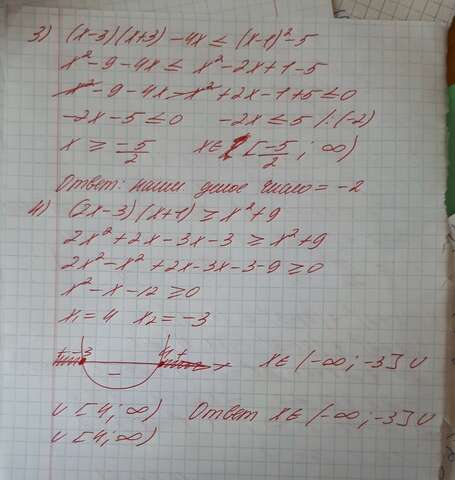 3) (x-3)(x+3) -4x ≤ (x-1)²-5
x²-9-4x ≤ x²-2x+1-5
x²-9-4x-x²+2x-1+5≤0
-2x-5≤0 -2x≤5 /:(-2)
x ≥ -5/2 x∈ [-5/2; ∞)
Ответ: наим целое число = -2
4) (2x-3)(x+1) ≥ x²+9
2x²+2x-3x-3 ≥ x²+9
2x²-x²+2x-3x-3-9≥0
x²-x-12≥0
x₁=4 x₂=-3
+ -3 - 4 + x x∈ (-∞; -3] ∪
∪ [4; ∞) Ответ x∈ (-∞; -3] ∪
∪ [4; ∞)